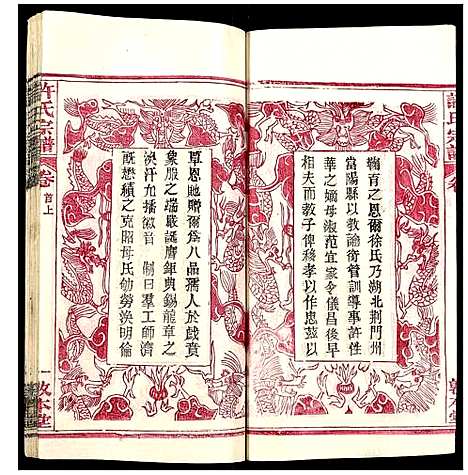 鞠育之恩爾徐氏乃湖北荆門州
當陽縣以教諭銜管訓導事許性
華之嫡母淑范宜家令儀昌後早
相夫而教子俾移孝以作忠茲以
覃恩貤贈爾爲八品孺人於戲賁
象服之端嚴誕膺鉅典錫龍章之
渙汗允播徽音 制曰羣工師濟
旣懋績之克昭母氏劬勞渙明倫
許氏宗譜
卷首上
一
敦本堂
許氏宗譜
敦本堂